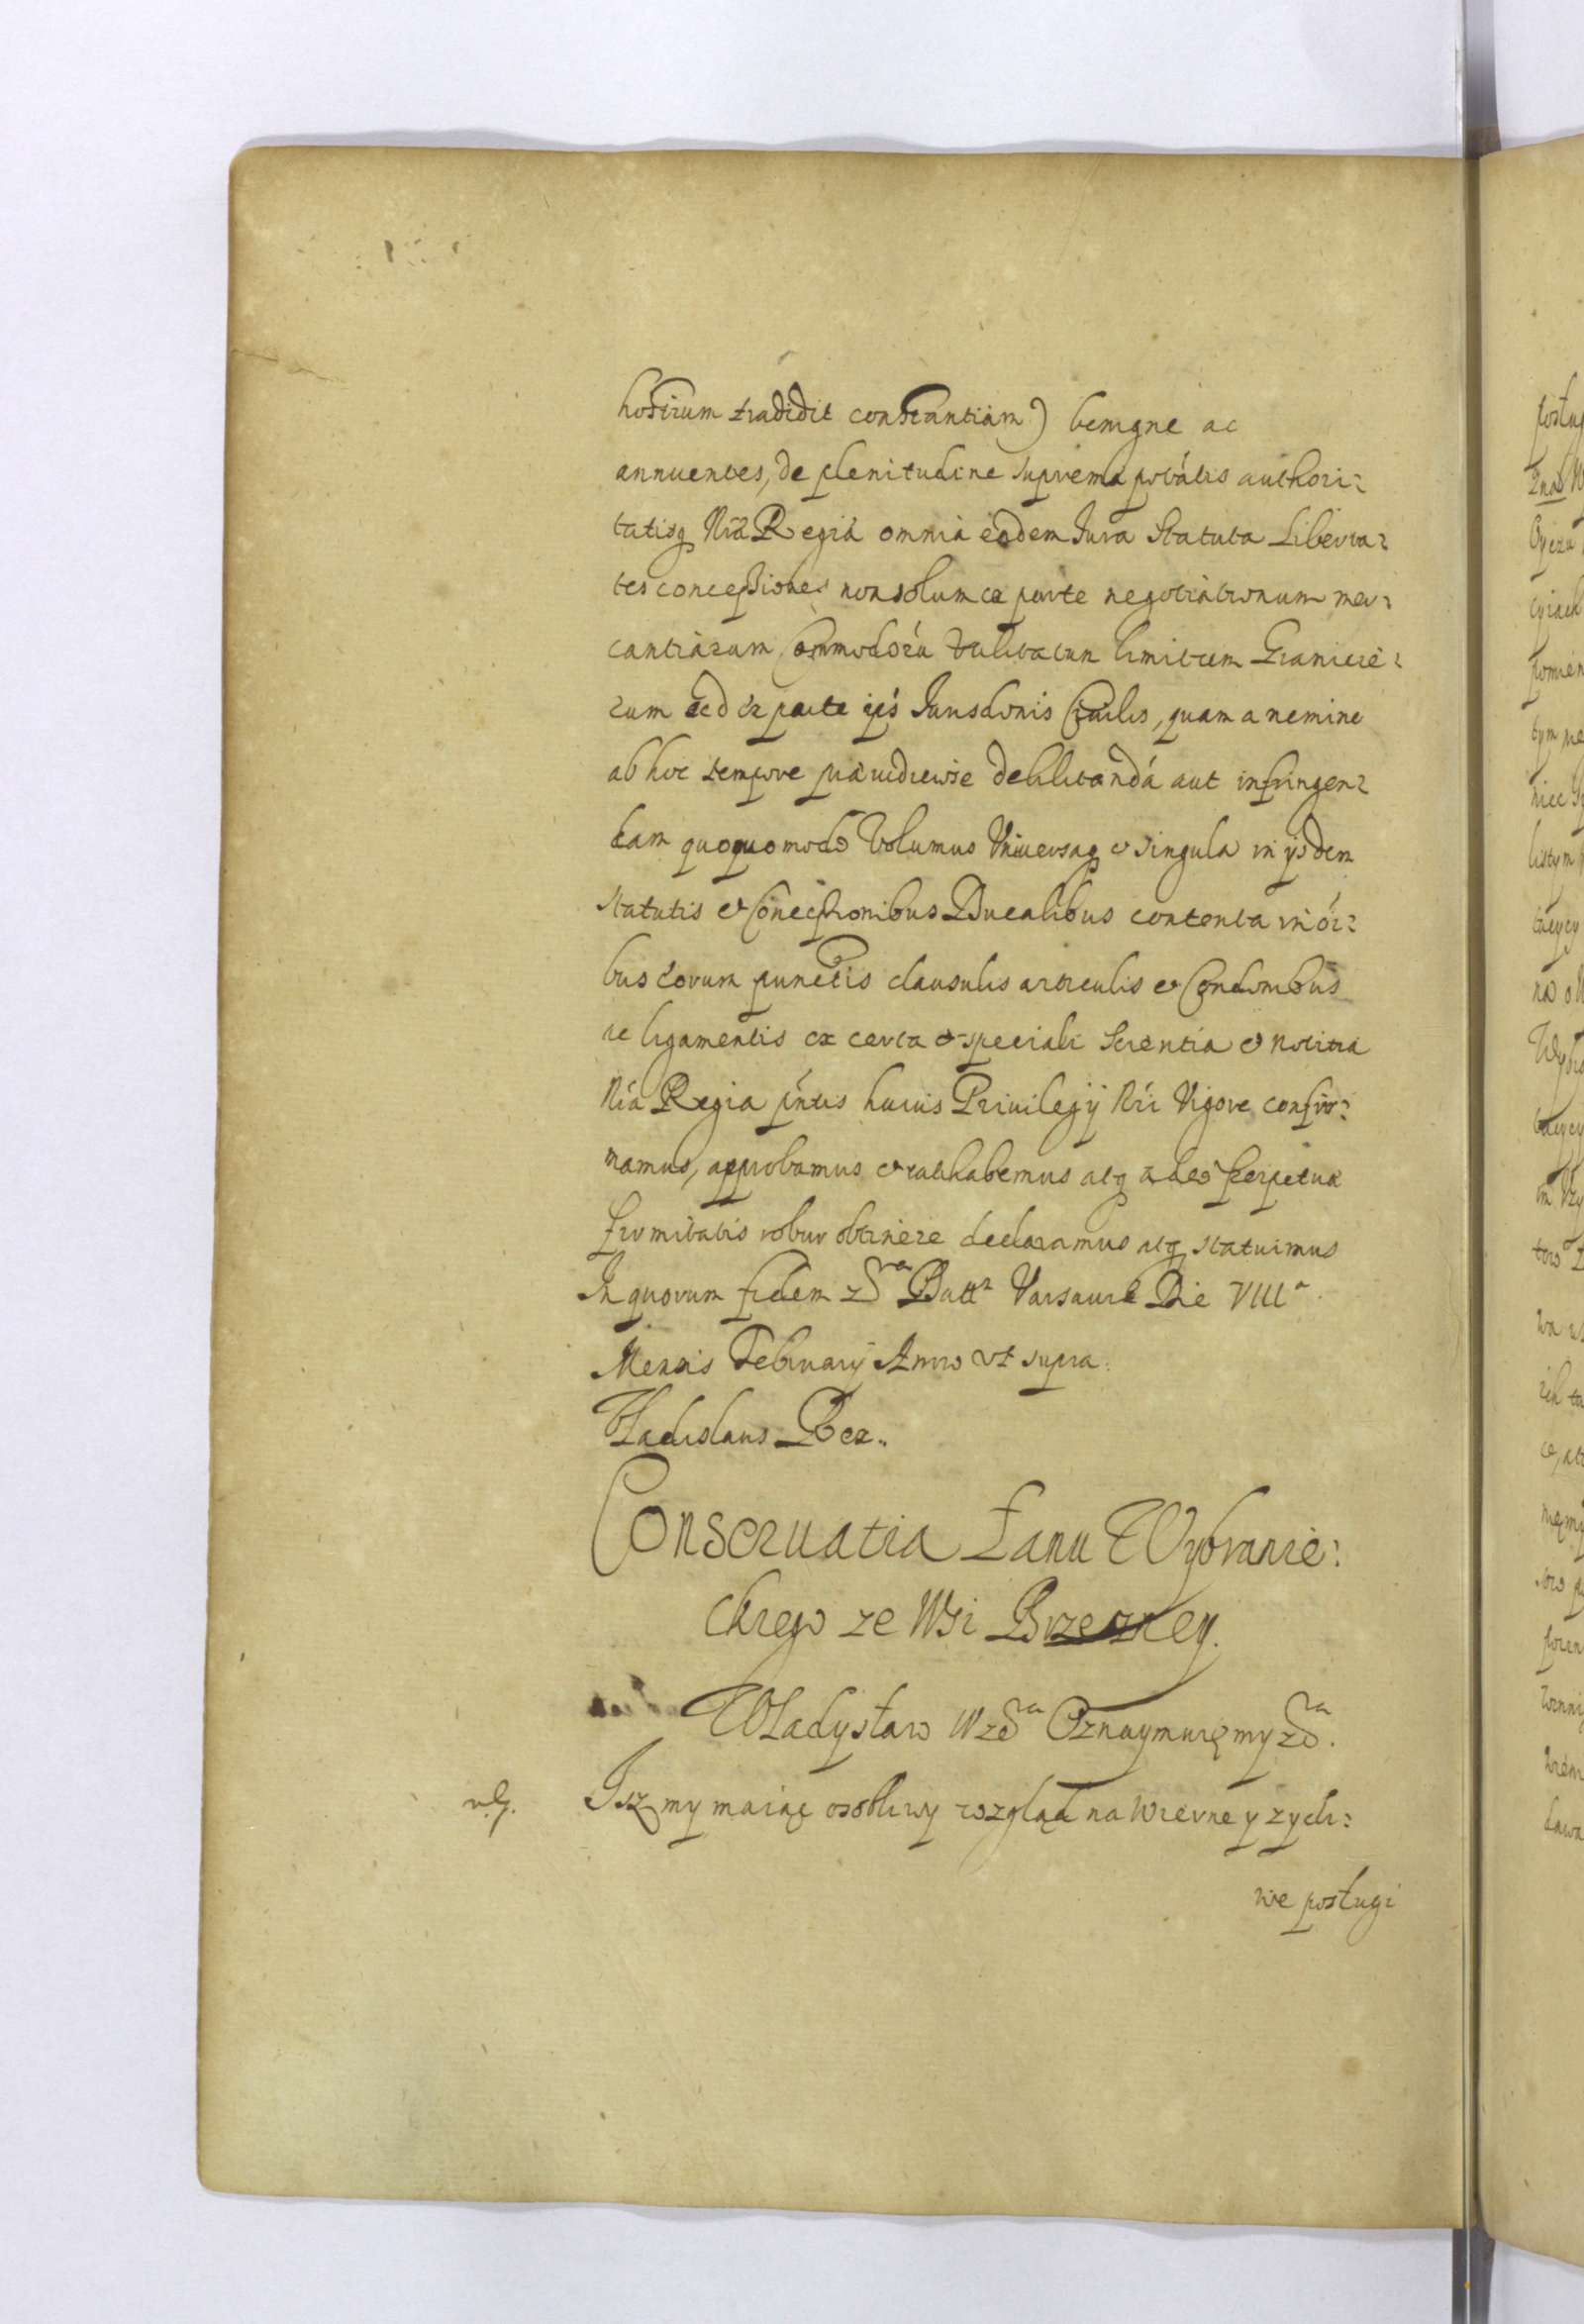 hostium tradidit constantiam) benigne ac
annuentes, de plenitudine suprema ptátis authori:
tatisq Nrã Regiá omnia eadem Jura Statuta Liberta:
tes concessiones non solum ex parte negotiationum mer:
cantiarum Commodorú Vtilitatum limitum Granicie:
rum sed ex parte ejús Jurisdonis Ciuilis, quam a nemine
ab hoc tempore debilitandá aut infringen:
dam quoquomodo Volumus Vniuersaq et singula in ijsdem
statutis et Concessionibus Ducalibus contenta in ói:
bus eorum punctis clausulis articulis et Condonibus
ac ligamentis ex certa et speciali Scientia et notitia
Nrá Regia pńtis huius Priuilegij Nri Vigore confir:
mamus, approbamus et ratihabemus atq adeo perpetua
firmitatis robur obtinere declaramus atq statuimus
In quorum fidem & Datt Varsauie Die VIII a
Mensis February Anno vt supra.
Vladislaus Rex.
Conseruatia Łanu Wybranie:
ckiego ze Wsi Brzezney.
Władysław W zd ra Oznaymuięmy zd ra.
Isz my maiąc osobliwy wzgląd na wierne y zycli:
we posługi